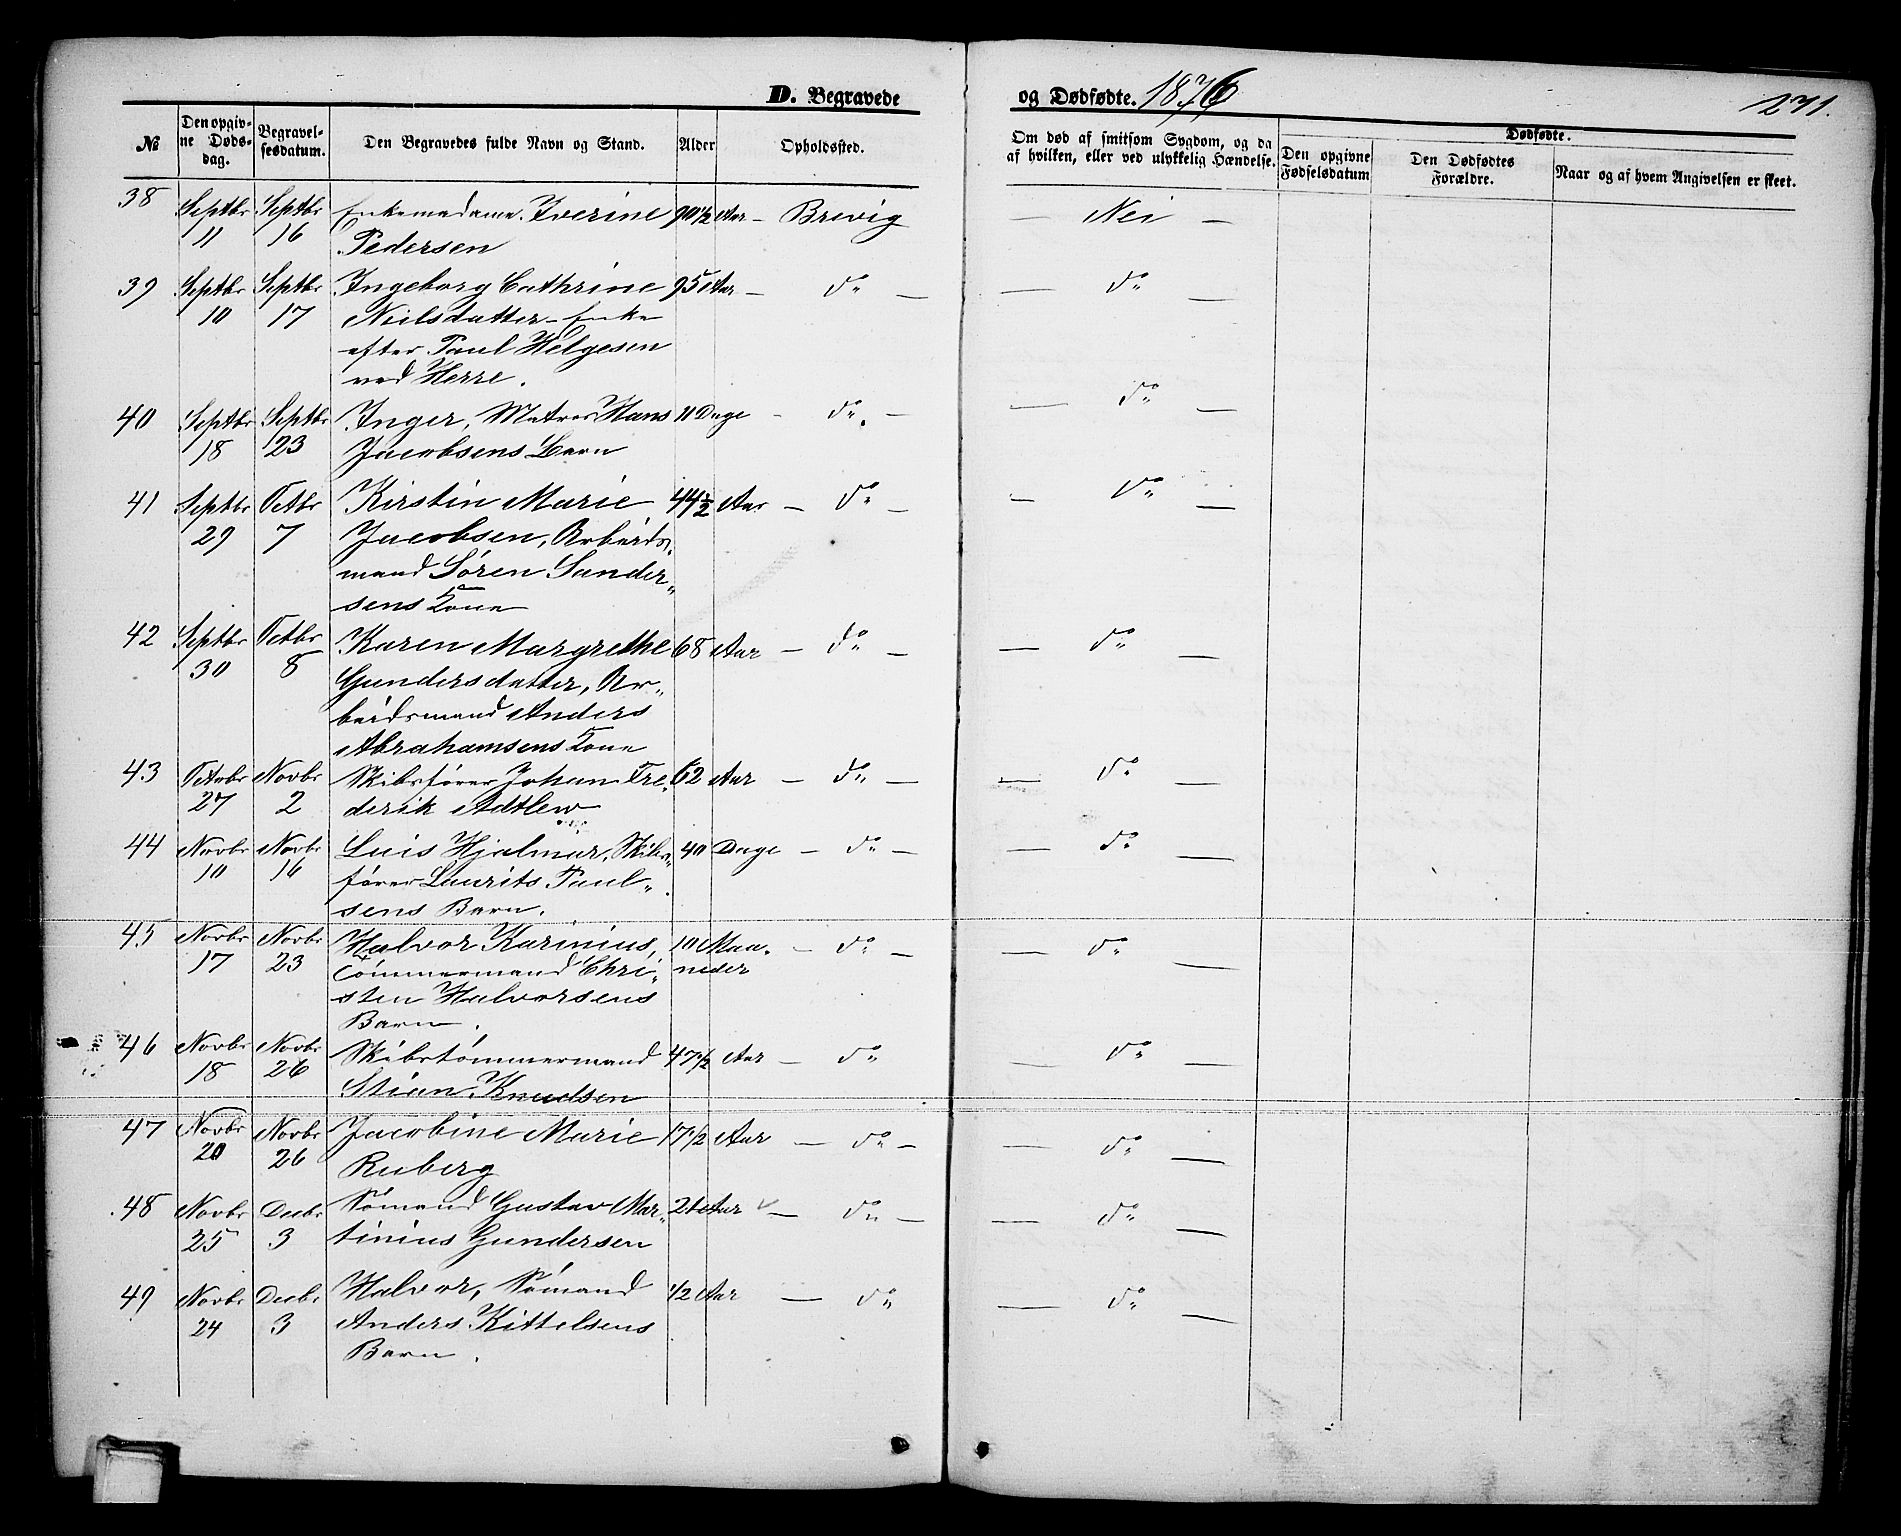 D. Begravede og Dødfødte. 1876 271.
№ Den opgivne Dødsdag. Begravelsesdatum. Den Begravedes fulde Navn og Stand. Alder Opholdssted. Om død af smitsom Sygdom, og da af hvilken, eller ved ulykkelig Hændelse. Dødfødte.
Den opgivne Fødselsdatum Den Dødfødtes Forældre. Naar og af hvem Angivelsen er skeet.
38 Septbr 11 Septbr 16 Enkemadame Iverine 90 1/2 Aar – Brevig — Nei —
Pedersen
39 Septbr 10 Septbr 17 Ingeborg Cathrine 95 Aar – do — — do —
Neilsdatter – Enke
efter Paul Helgesen
ved Herre.
40 Septbr 18 Septbr 23 Inger, Matros Hans 11 Dage – do – — do —
Jacobsens Barn
41 Septbr 29 Octbr 7 Kirstin Marie 44 1/2 Aar – do – — do —
Jacobsen, Arbeids„
mand Sören Sander„
sens Kone
42 Septbr 30 Octbr 8 Karen Margrethe 68 Aar – do – — do —
Gundersdatter, Ar„
beidsmand Anders
Abrahamsens Kone
43 Octbr 27 Novbr 2 Skibsfører Johan Fre„ 62 Aar – do – — do —
derik
44 Novbr 10 Novbr 16 Luis Hjalmar, Skibs„ 40 Dage – do – — do —
fører Laurits Paul„
sens Barn.
45 Novbr 17 Novbr 23 Halvor Karinius, 10 Maa„ – do – — do —
Tömmermand Chri„ neder
sten Halvorsens
Barn.
46 Novbr 18 Novbr 26 Skibstömmermand 47 1/2 Aar – do — do —
Stian Knudsen
47 Novbr 20 Novbr 26 Jacobine Marie 17 1/2 Aar – do – — do —
Ruberg
48 Novbr 25 Decbr 3 Sömand Gustav Mar„ 21 Aar – do – — do —
tinius Gundersen
49 Novbr 24 Decbr 3 Halvor, Sömand 1/2 Aar — do — do —
Anders Kittelsens
Barn.